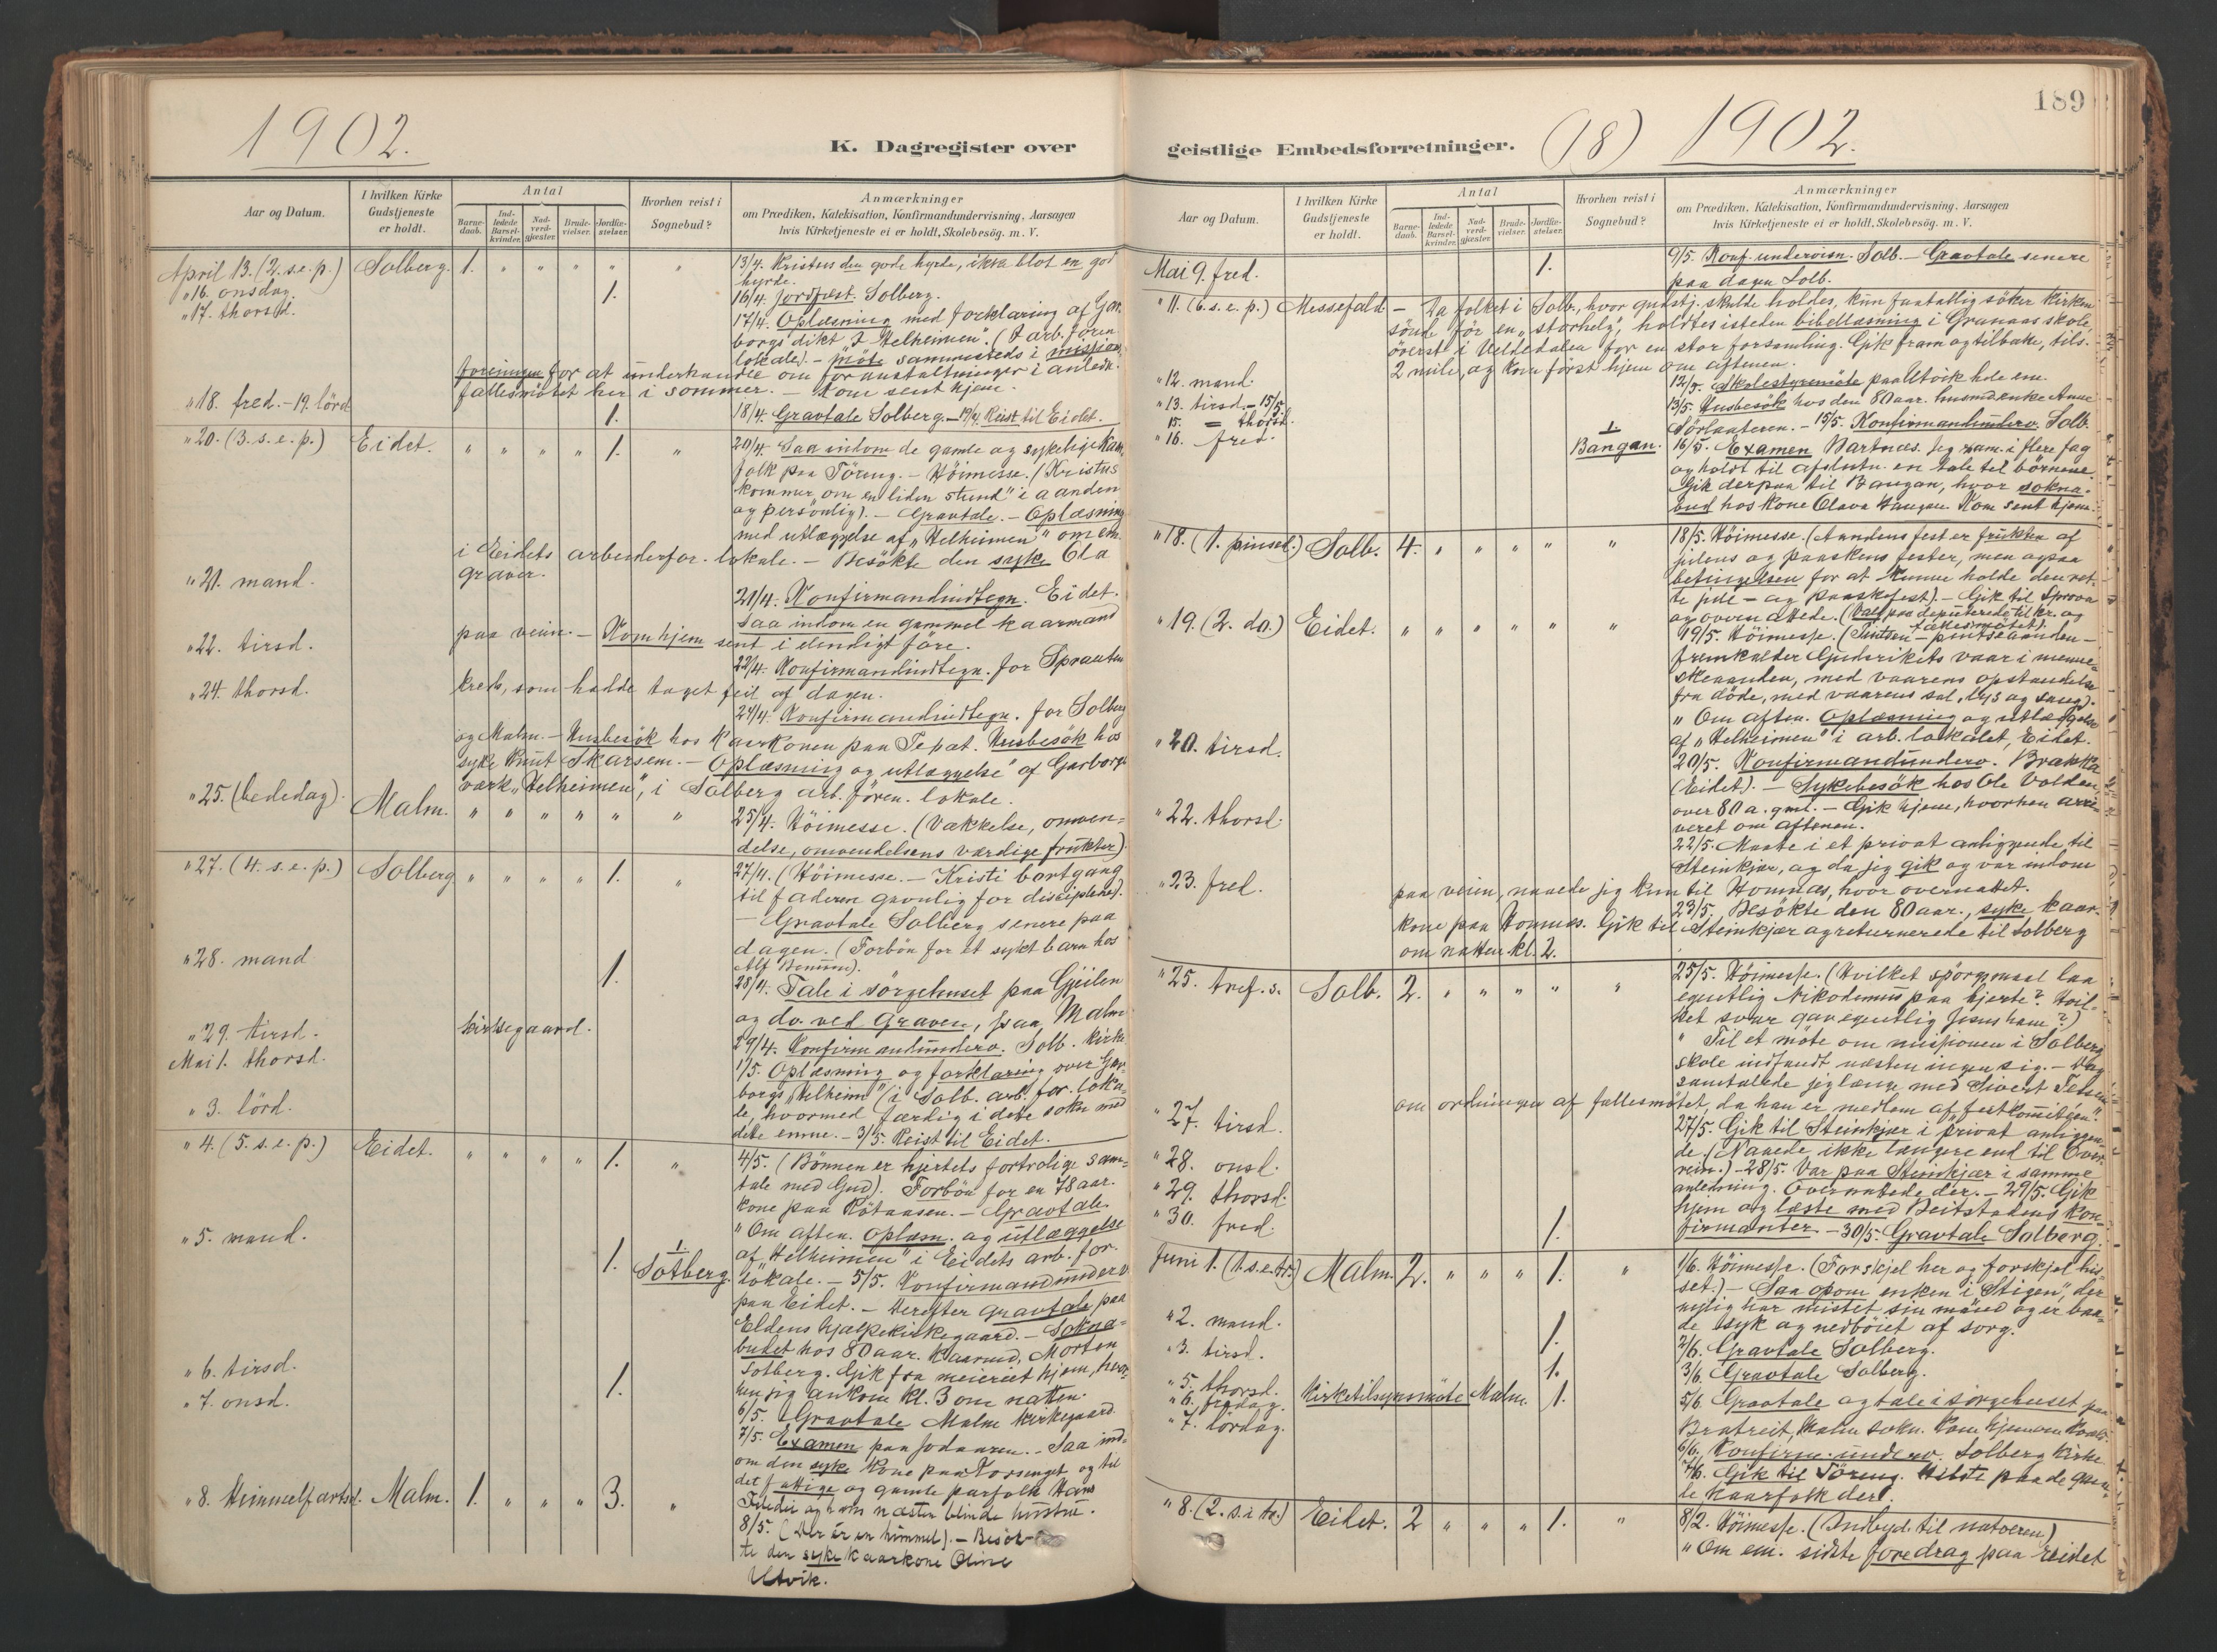 1902.
K. Dagregister over
Aar og Datum.
I hvilken Kirke
Gudstjeneste
er holdt.
Antal
Barne-
daab.
Ind-
ledede
Barsel-
kvinder.
Nad-
verd-
gjæster.
Brude-
vielser.
Jordfæ-
stelser.
Hvorhen reist i
Sognebud?
Anmærkninger
om Prædiken, Katekisation, Konfirmandundervisning, Aarsagen
hvis Kirketjeneste ei er holdt, Skolebesøg. m. V.
April 13. (2. s. e. p.) Solberg. 1. " " " " " 13/4. Kristus den gode hyrde, ikke blot en god
hyrde.
" 16. onsdag. 1. 16/4. Jordfæst. Solberg.
" 17. thorsd. 17/4. Oplæsning med forklaring af Gar-
borgs dikt "I Helheimen". (I arb. fören.
lokale). – Möte sammesteds i missions
foreningen for at underhandle om foranstaltninger i anledn.
fællesmötet her i sommer. – Kom sent hjem.
" 18. fred. – 19. lörd. 1. 18/4. Gravtale Solberg. – 19/4. Reist til Eidet.
" 20. (3. s. e. p.) Eidet. " " " " 1. " 20/4. Saa indom de gamle og sykelige kaar-
folk paa Töring. – Höimesse. (Kristus
kommer "om en liden stund" i aanden
og personlig). – Gravtale. – Oplæsning
med utlæggelse af "Helheimen" om em.
i Eidets arbeiderfor. lokale. – Besökte den syke Ola
Graver.
" 21. mand. 21/4. Konfirmandindtegn. Eidet.
Saa indom en gammel kaarmand
paa veien. – Kom hjem sent i elendigt före.
" 22. tirsd. 22/4. Konfirmandindtegn. for
kreds, som hadde taget feil af dagen.
" 24. thorsd. 24/4. Konfirmandindtegn. for Solberg
og Malm. – Husbesök hos kaarkonen paa Tepat. Husbesök hos
syke Knut Skarsem. – Oplæsning og utlæggelse af Garborgs
værk "Helheimen", i Solberg arb. fören. lokale.
" 25. (bededag). Malm. " " " " " " 25/4. Höimesse. (Vækkelse, omven-
delse, omvendelsens værdige frukter).
" 27. (4. s. e. p.) Solberg. " " " " 1. " 27/4. (Höimesse. – Kristi bortgang
til faderen gavnlig for disciplene).
– Gravtale Solberg senere paa
dagen. (Forbön for et sykt barn hos
Alf
" 28. mand 1. 28/4. Tale i sörgehuset paa Gjeilen
og do. ved Graven, paa Malm
kirkegaard.
" 29. tirsd. 29/4. Konfirmandunderv. Solb. kirke
Mai 1. thorsd. 1/5. Oplæsning og forklaring over Gar-
borgs "Helheim" (i Solb. arb. for. loka-
le, hvormed færdig i dette sokn med
" 3. lörd. dette emne. – 3/5. Reist til Eidet.
" 4. (5. s. e. p.) Eidet. " " " " 1. " 4/5. (Bönnen er hjertets fortrolige sam-
tale med Gud). Forbön for en 78 aar.
kone paa – Gravtale.
" Om aften. oplæsn. og utlæggelse
af "Helheimen" i Eidets arb. for.
" 5. mand. 1. 1. Solberg. lokale. – 5/5. Konfirmandunderv
paa Eidet. – Herefter gravtale paa
Eldens hjælpekirkegaard. – Sokne-
budet hos 80 aar. kaarmd. Morten
Solberg. Gik fra meieriet hjem, hvor-
hen jeg ankom kl. 3 om natten.
" 6. tirsd. 1. 6/5. Gravtale Malm kirkegaard.
" 7. onsd. 7/5. Examen paa Jodaaren. – Saa ind-
om den syke kone paa og til
det fattige og gamle parfolk Hans
og hans næsten blinde hustru.
" 8. Himmelfartsd. Malm. 1. " " " 3. " 8/5. (Der är en himmel). – Besök-
te den syke kaarkone Oline
Utvik.
189
geistlige Embedsforretninger. (18) 1902.
Aar og Datum.
I hvilken Kirke
Gudstjeneste
er holdt.
Antal
Barne-
daab.
Ind-
ledede
Barsel-
kvinder.
Nad-
verd-
gjæster.
Brude-
vielser.
Jordfæ-
stelser.
Hvorhen reist i
Sognebud?
Anmærkninger
om Prædiken, Katekisation, Konfirmandundervisning, Aarsagen
hvis Kirketjeneste ei er holdt, Skolebesög. m. V.
Mai 9. fred. 1. 9/5. Konf. undervisn. Solb. – Gravtale senere
paa dagen Solb.
" 11. (6. s. e. p.) Messefald – Da folket i Solb., hvor gudstj. skulde holdes, kun faatallig söker kirken
sönd. för en "storhelg", holdtes isteden bibellæsning i Granaas skole,
överst i Heldedalen for en stor forsamling. Gik fram og tilbake, tils.
2 mile, og kom först hjem om aftenen.
" 12. mand. 12/5. Skolestyremöte paa Utvik hele em.
" 13. tirsd. – 15/5. 13/5. Husbesök hos den 80 aar. husmdenke Anne
15. – thorsd. – 15/5. Konfirmandunderv. Solb.
" 16. fred. 1. Bangan. 16/5. Examen Bartnes. Jeg exam. i flere fag
og holdt til afslutn. en tale til börnene.
Gik derpaa til Bangan, hvor sokne-
bud hos kone Olava Bangan. Kom sent hjem.
" 18. (1. pinsed.) Solb. 4. " " " " " 18/5. Höimesse. (Aandens fest er frukten af
julens og paaskens fester, men ogsaa
betingelsen for at kunne holde den ret-
te jule – og paaskefest). – Gik til Sprova
og overnattede. (Valg paa deputerede til kr. og
fællesmötet).
" 19. (2. do.) Eidet. " " " " " " 19/5. Höimesse. (Pintsen – pintseaanden –
fremkalder Gudsrikets vaar i menne-
skeaanden, med vaarens opstandelse
fra döde, med vaarens sol, lys og sang).
" Om aften. Oplæsning og utlæggelse
af "Helheimen" i arb. lokalet, Eidet.
" 20. tirsd. 20/5. Konfirmandunderv. Brækka
(Eidet). – Sykebesök hos Ole Volden,
over 80 a. gml. – Gik hjem, hvorhen arri-
veret om aftenen.
" 22. thorsd. 22/5. Maate i et privat anliggende til
Steinkjær, og da jeg gik og var indom
paa veien, naaede jeg kun til Homnæs, hvor overnattet.
" 23. fred. 23/5. Besökte den 80 aar., syke kaar-
kone paa Homnæs. Gik til Steinkjær og returnerede til Solberg
om natten kl. 2.
" 25. tref. s. Solb. 2. " " " " " 25/5. Höimesse. (Hvilket spörgsmaal laa
egentlig Nikodemus paa hjerte? Hvil-
ket svar gav egentlig Jesus ham?)
" Til et möte om missionen i Solberg
skole indfandt næsten ingen sig. – Dog
samtalede jeg længe med Sivert
om ordningen af fællesmötet, da han er medlem af "festkomitéen".
" 27. tirsd. 27/5. Gik til Steinkjær i privat anliggen-
de. (Naaede ikke længere end til
" 28. onsd. – 28/5. Var paa Steinkjær i samme
anledning. Overnattede der. – 29/5. Gik
" 29. thorsd. hjem og læste med Beitstadens kon-
" 30. fred. 1. firmanter. – 30/5. Gravtale Solberg.
Juni 1. (1. s. e. tr.) Malm. 2. " " " 1. " 1/6. Höimesse. (Forskjel her og forskjel his-
set.) – Saa opom enken i "Stigen", der
nylig har mistet sin mand og er baa-
de syk og nedböiet af sorg.
" 2. mand. 1. 2/6. Gravtale Solberg.
" 3. tirsd. 1. 3/6. Gravtale Solberg.
" 5. thorsd. Kirketilsynsmöte Malm. 1. 5/6. Gravtale og tale i sörgehuset paa
Bratreit, Malm sokn. Kom hjem om kvæld.
" 6. fredag. 6/6. Konfirm. underv. Solberg kirke
" 7. lördag. 7/6. Gik til Töring. Hilste paa de gam-
le kaarfolk der.
" 8. (2. s. i tr.) Eidet. 2 " " " 1. " 8/2. Höimesse. (Indbyd. til natveren)
" Om em. sidste foredrag paa Eidet